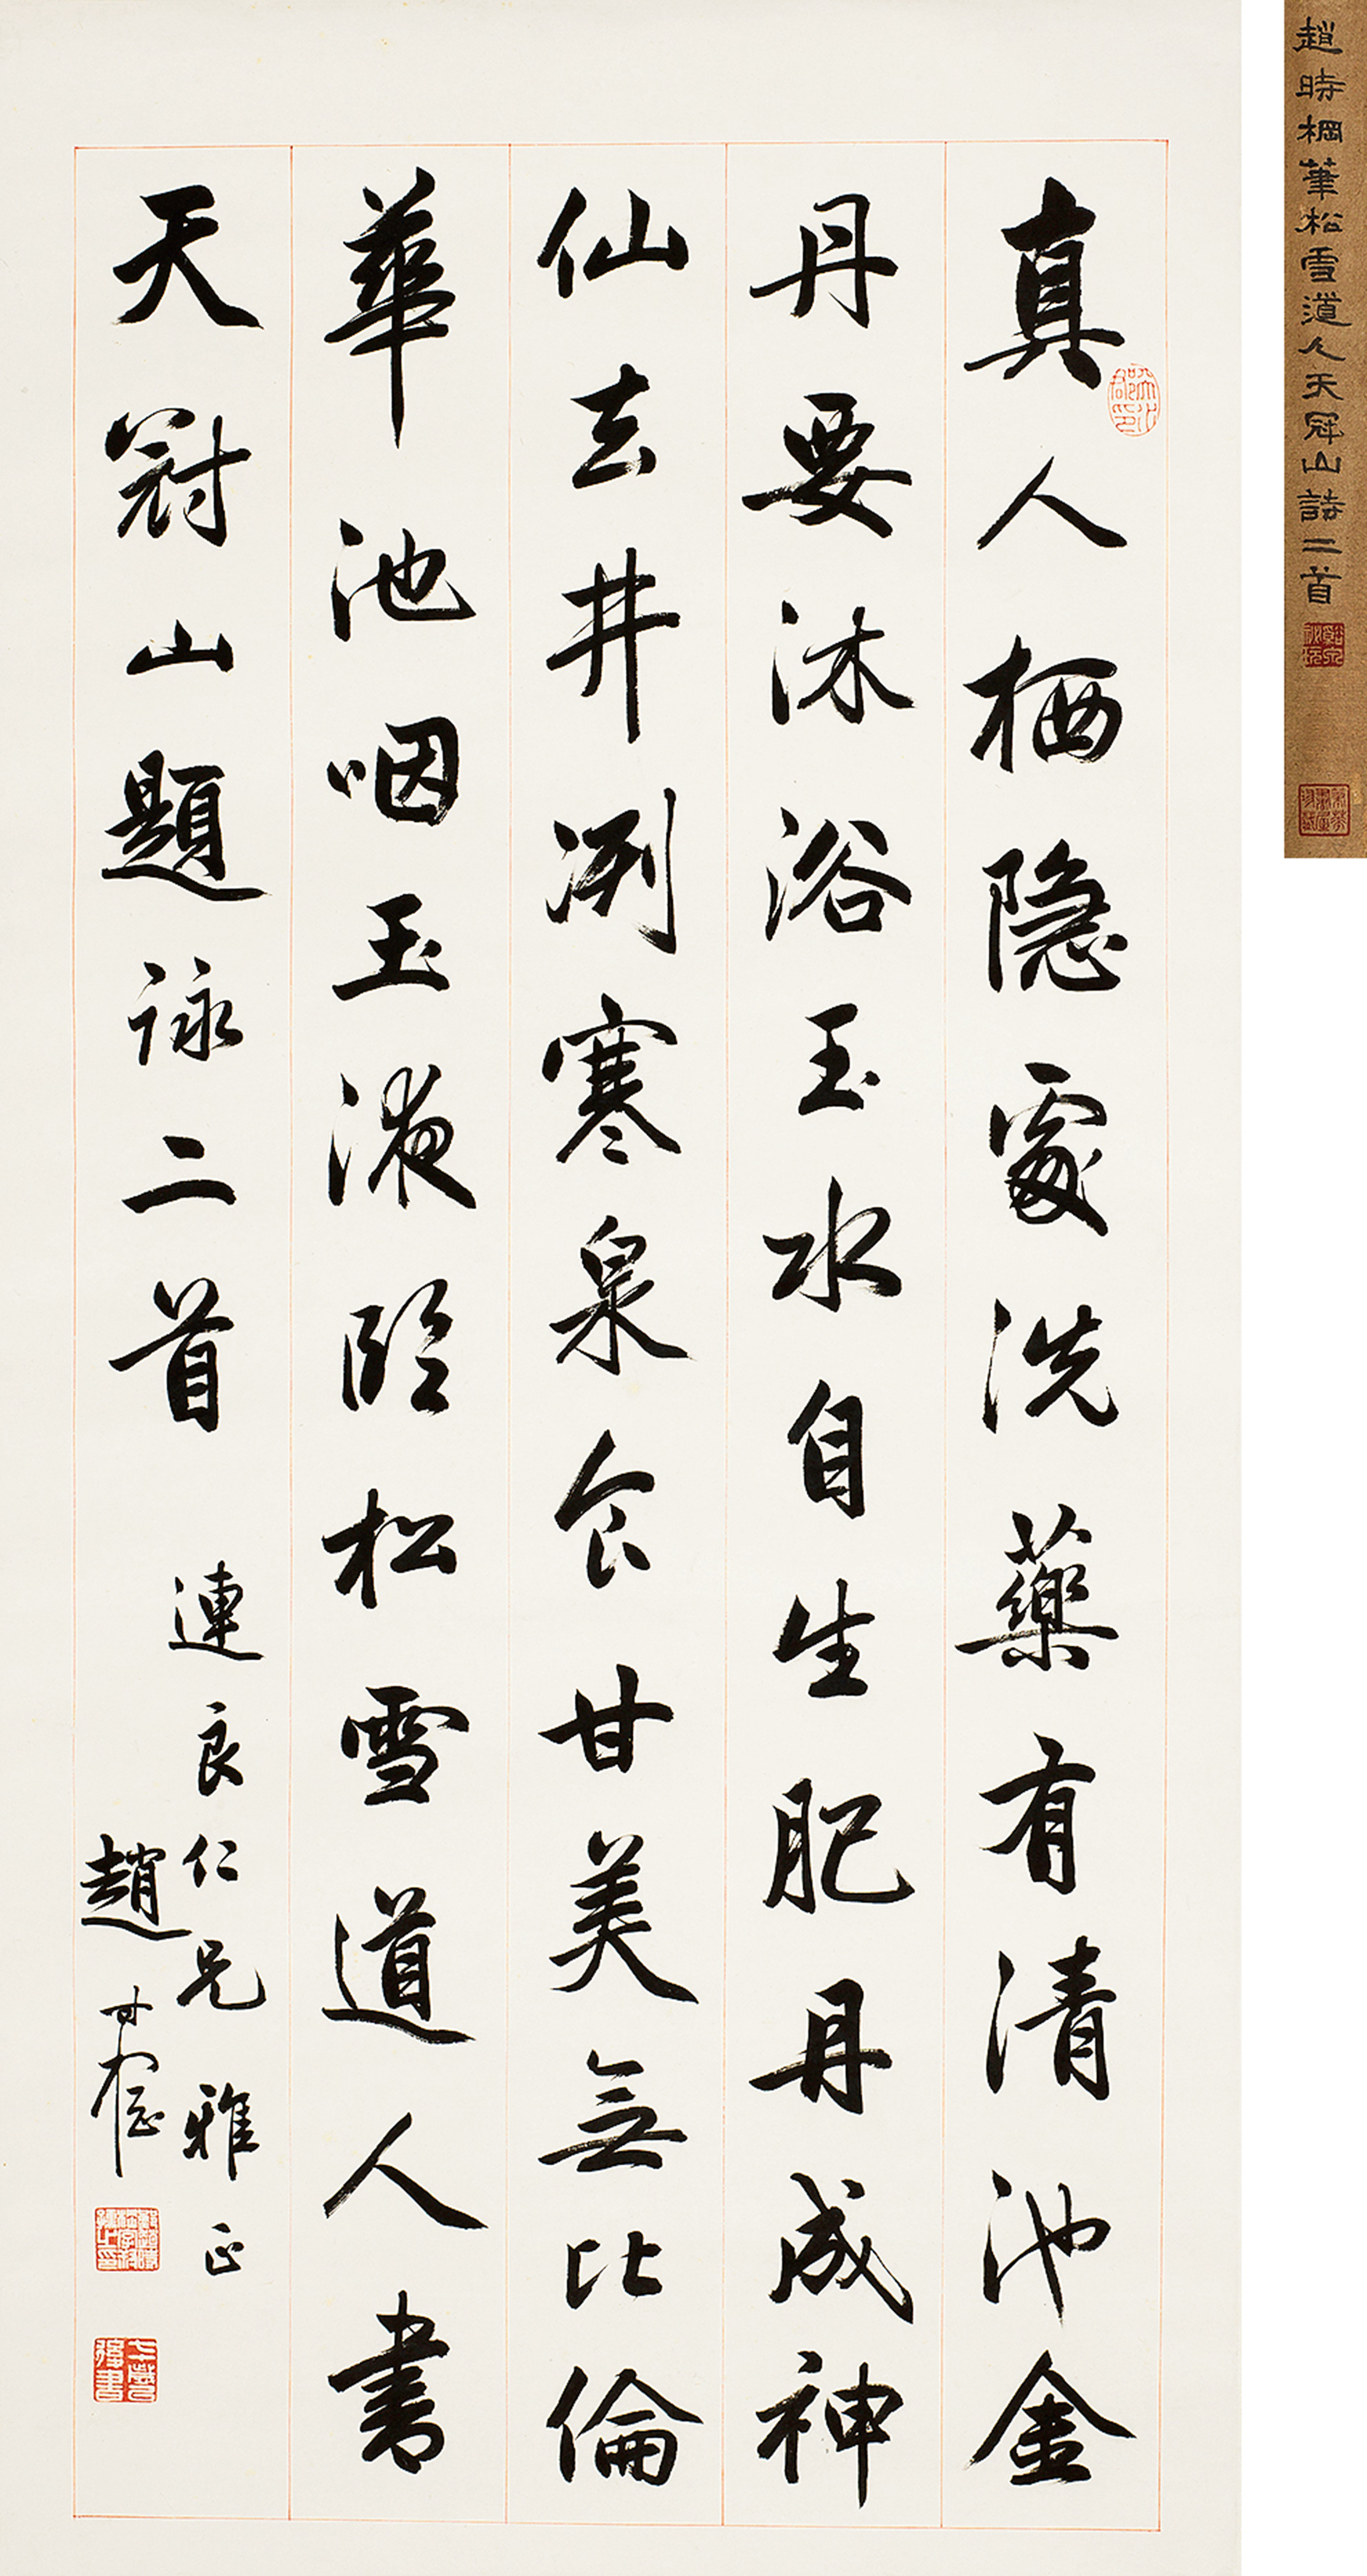 真人栖隱處洗藥有清池金
丹要沐浴玉水自生肥丹成神
仙去井冽寒泉食甘美無比倫
華池咽玉液臨松雪道人書
天冠山題詠二首
連良仁兄雅正
趙時棡
趙時棡筆松雪道人天冠山詩二首